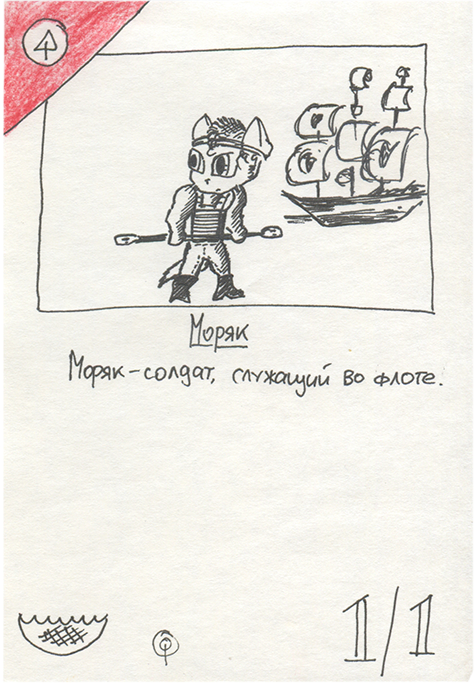 Моряк
Моряк-солдат, служащий во флоте.
1/1